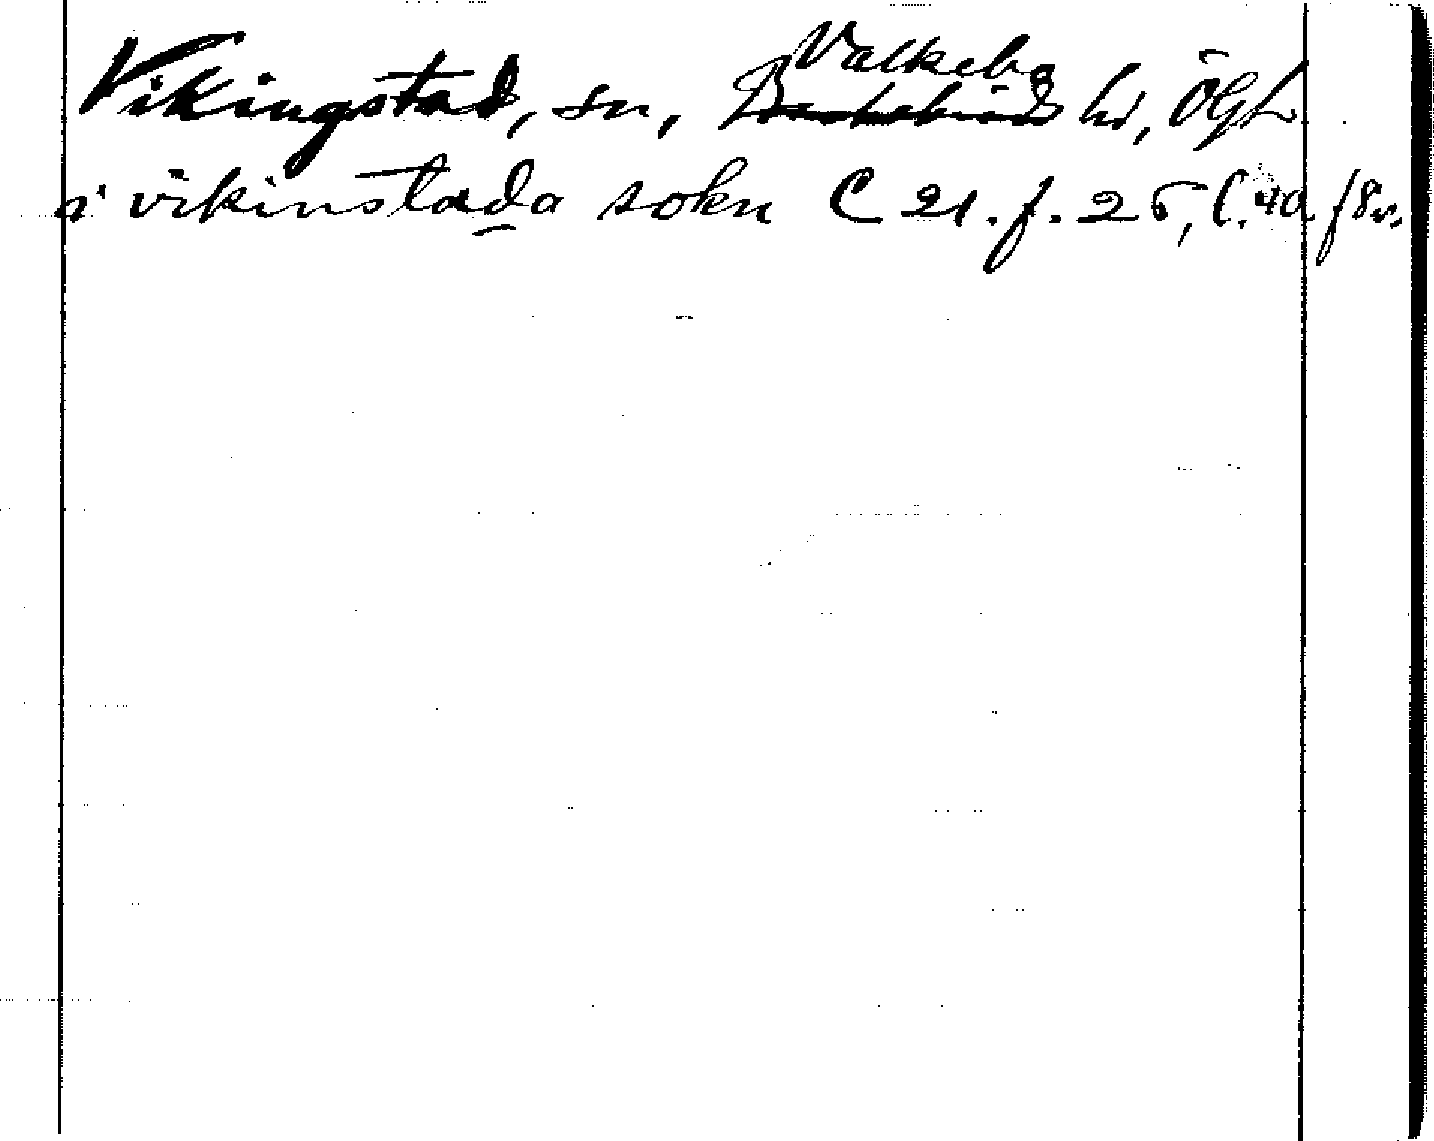 Vikingstad, sn, Valkebo hd, Ögl.
i vikinstada sokn C 21. f. 25, C. 40. f 8 v.